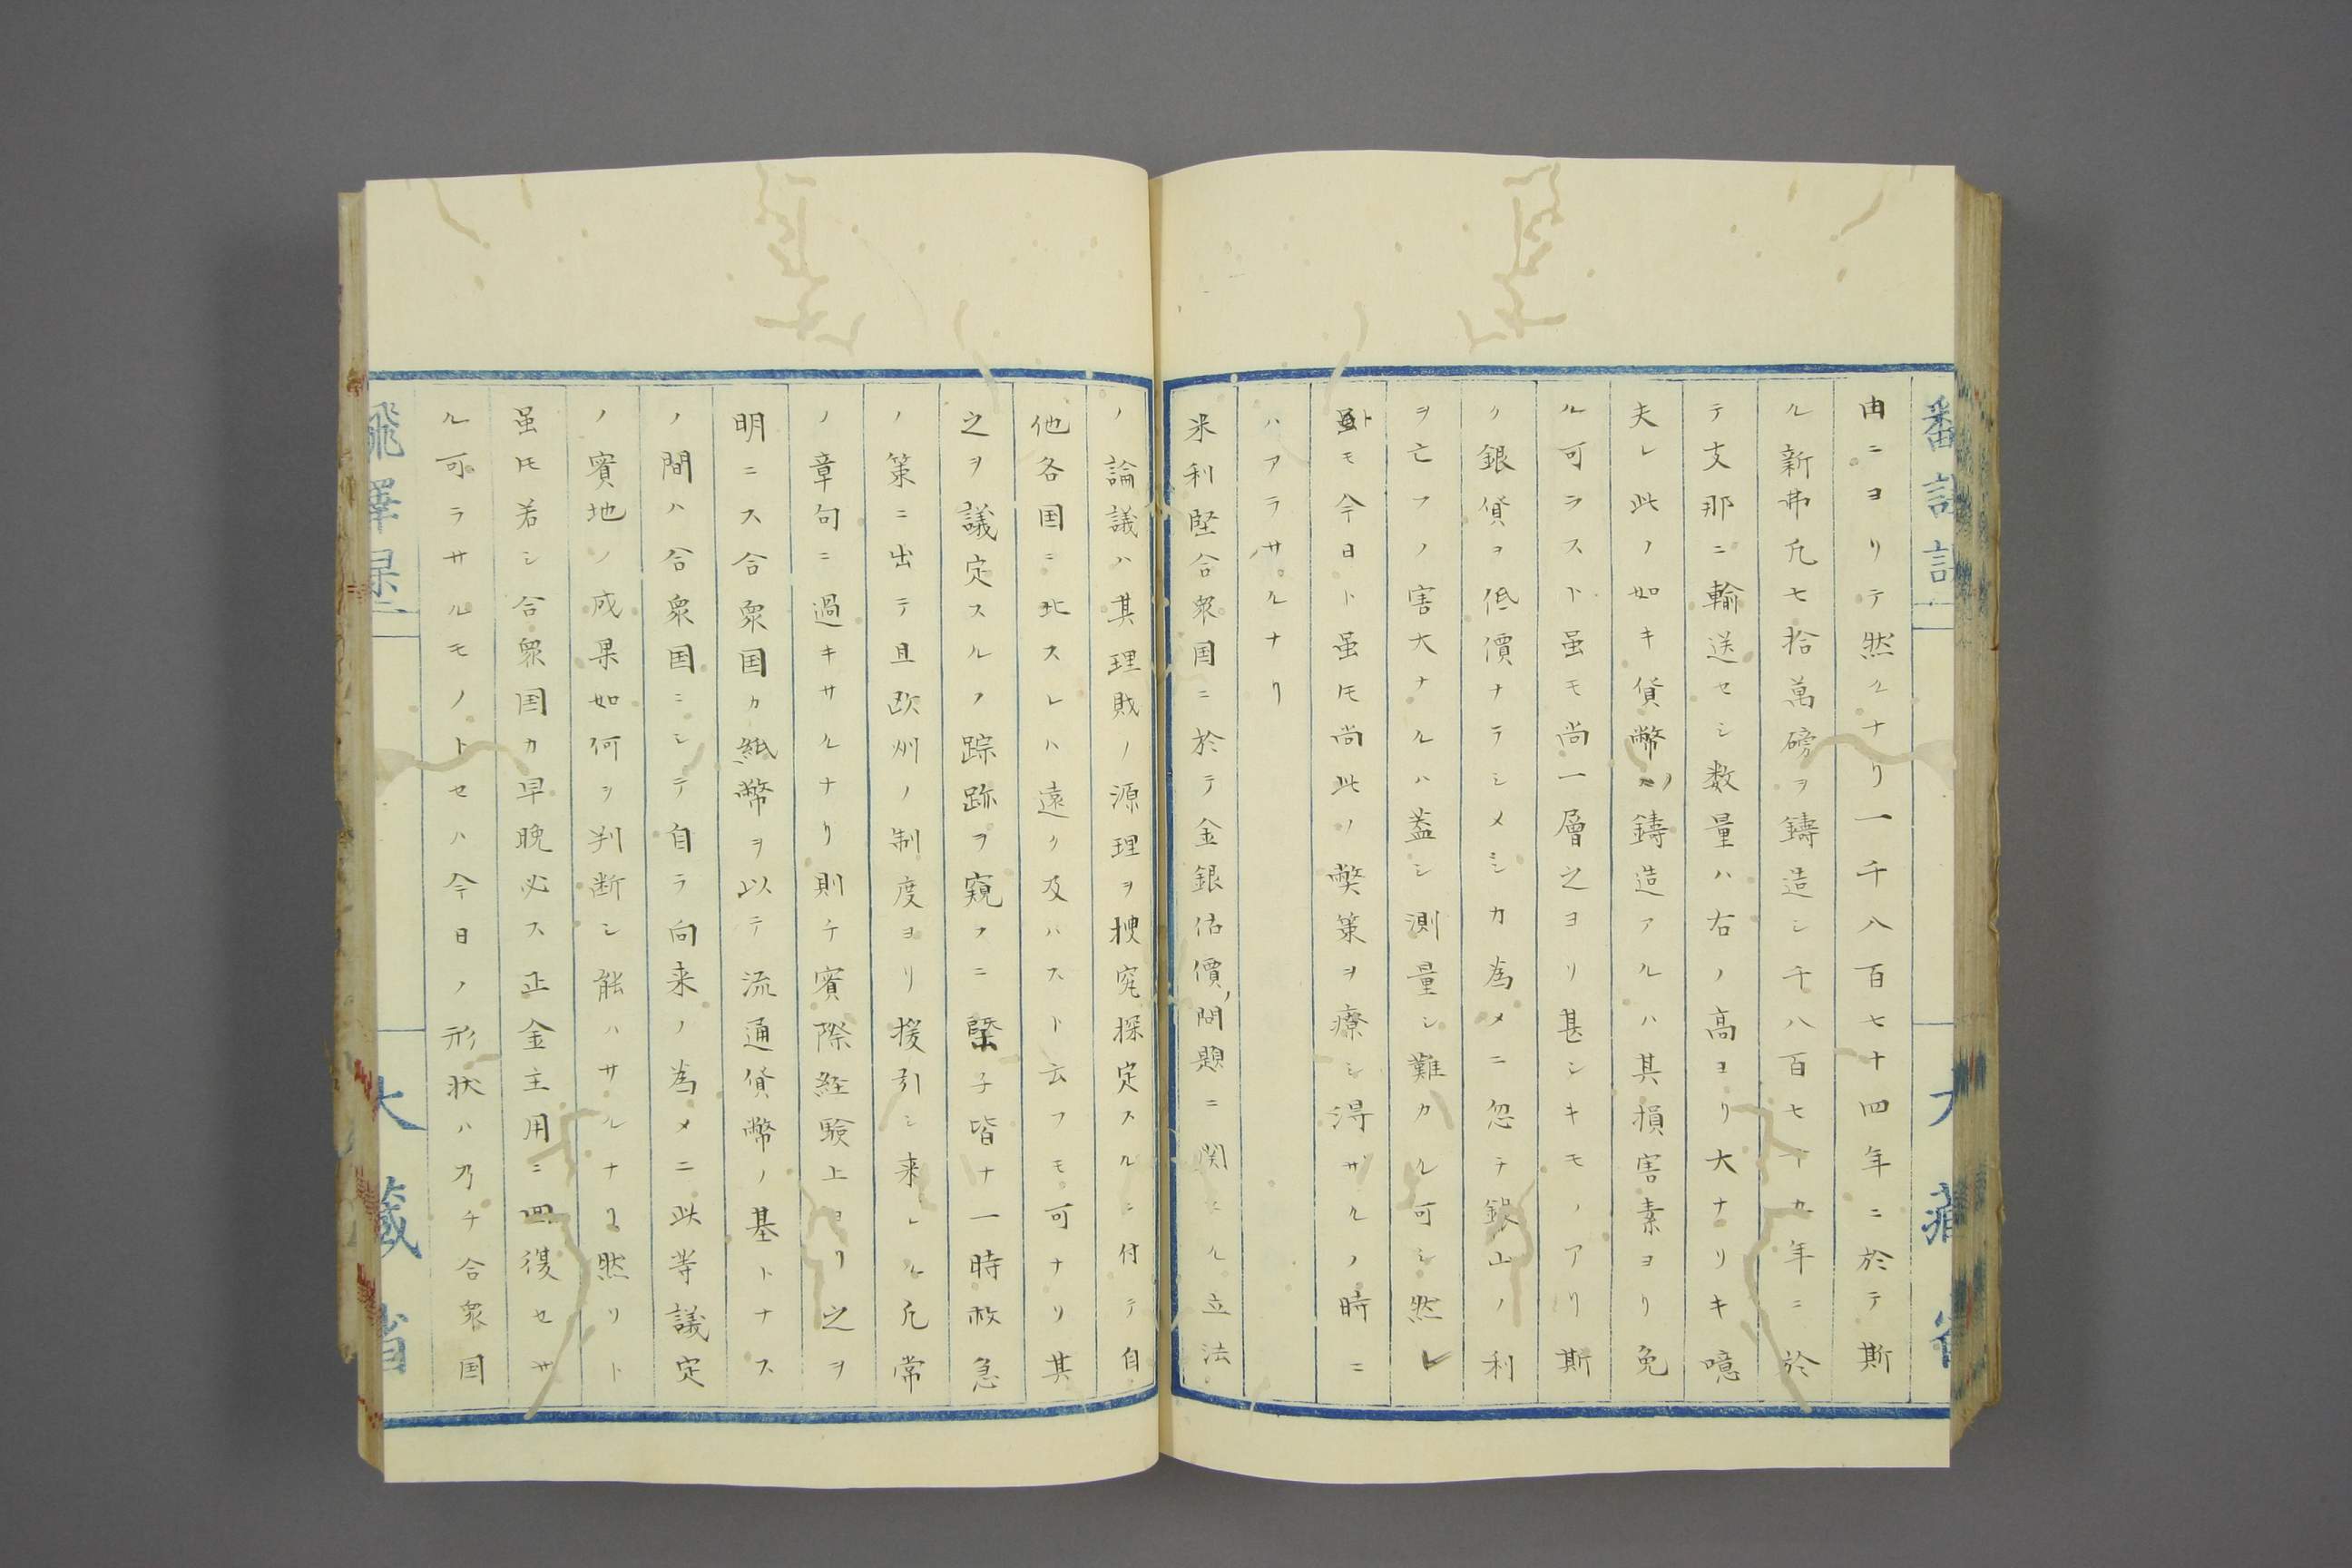 由ニヨリテ然ルナリ一千八百七十四年ニ於テ斯
ル新弗凡七拾萬磅ヲ鋳造シ千八百七十九年ニ於
テ支那ニ輸送セシ数量ハ右ノ高ヨリ大ナリキ噫
夫レ此ノ如キ貨幣ノ鋳造アルハ其損害素ヨリ免
ル可ラスト虽モ尚一層之ヨリ甚シキモノアリ斯
ク銀貨ヲ低價ナラシメシカ為メニ忽チ銀山ノ利
ヲ亡フノ害大ナルハ蓋シ測量シ難カル可シ然レ
モ今日ト虽𪜈尚此ノ弊策ヲ療シ得ザルノ時ニ
ハアラサルナリ
米利堅合衆国ニ於テ金銀估價問題ニ関スル立法
ノ論議ハ其理財ノ源理ヲ捜究探定スルニ付テ自
他各国ニ比スレハ遠ク及ハスト云フモ可ナリ其
之ヲ議定スルノ踪跡ヲ窺フニ槩子皆ナ一時救急
ノ策ニ出テ且欧州ノ制度ヨリ援引シ来レル凡常
ノ章句ニ過キサルナリ則チ實際経験上ヨリ之ヲ
明ニス合衆国カ紙幣ヲ以テ流通貨幣ノ基トナス
ノ間ハ合衆国ニシテ自ラ向来ノ為メニ此等議定
ノ實地ノ成果如何ヲ判断シ能ハサルナリ然リト
虽𪜈若シ合衆国カ早晩必ス正金主用ニ回復セサ
ル可ラサルモノトセハ今日ノ形状ハ乃チ合衆国
大蔵省